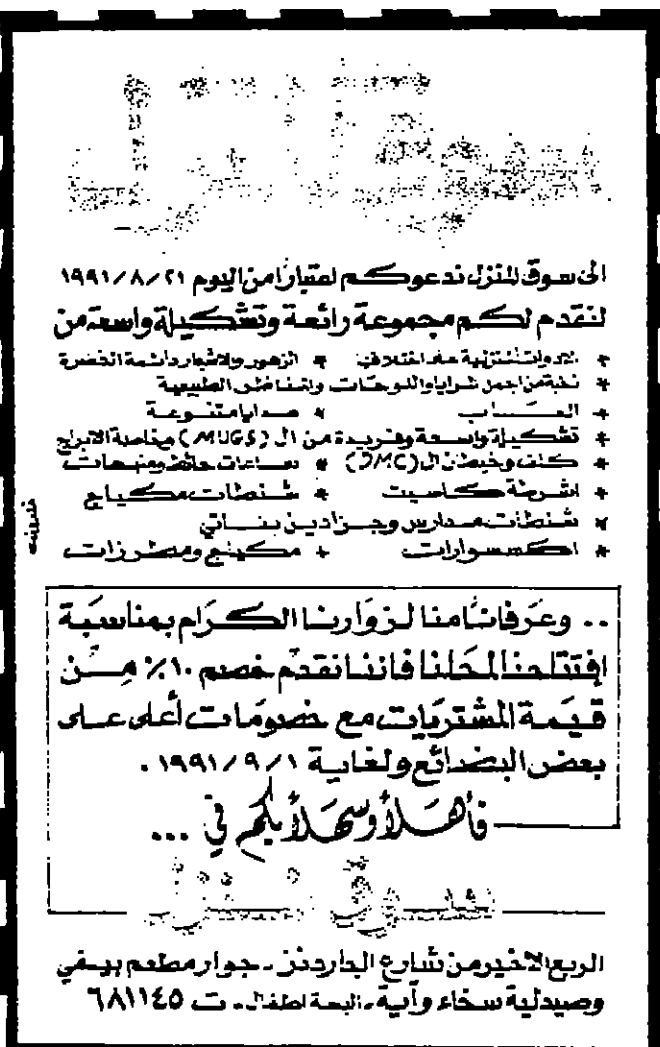 سوق المنزل
الى سوق المنزل ندعوكم اعتباراً من اليوم ٢١/٨/١٩٩١
لنقدم لكم مجموعة رائعة وتشكيلة واسعة من
* الادوات المنزلية على اختلافها * الزهور والاشجار دائمة الخضرة
* نخبة من اجمل المرايا واللوحات والمناظر الطبيعية
* العـاب * هدايا متنوعة
* تشكيلة واسعة وفريدة من ال (MUGS) وخاصة الابراج
* كنف وخيطان ال (DMC) * ساعات حائط ومنبهات
* اشرطة كاسيت * شنطات مكياج
* شنطات مدارس وجزادين بناتي
* اكسسوارات * مكينج ومطرزات
.. وعرفاناً منا لزوارنا الكرام بمناسبة
افتتاحنا لمحلنا فاننا نقدم خصم ١٠٪ من
قيمة المشتريات مع خصومات أعلى على
بعض البضائع ولغاية ١/٩/١٩٩١ .
فأهلاً وسهلاً بكم في ...
سوق المنزل
الربع الاخير من شارع الجاردنز - جوار مطعم بيفي
وصيدلية سخاء وآية - البسة اطفال - ت ٦٨١١٤٥